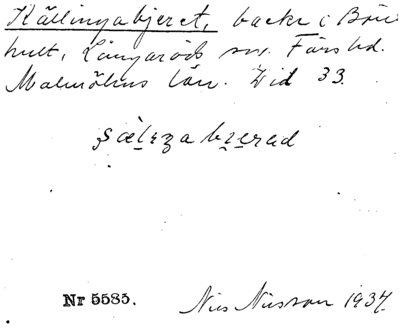 Källingabjeret, backe i Brö
hult, Långaröds sn. Färs hd.
Malmöhus län. Zid 33.
Nr 5585.
Nils Nilsson 1937.